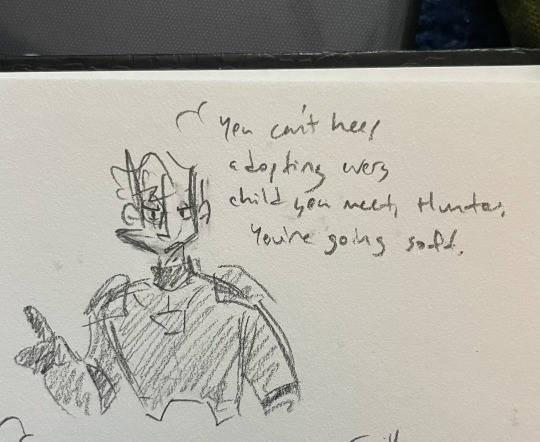 You can't keep
adopting every
child you meet, Hunter,
You're going soft.